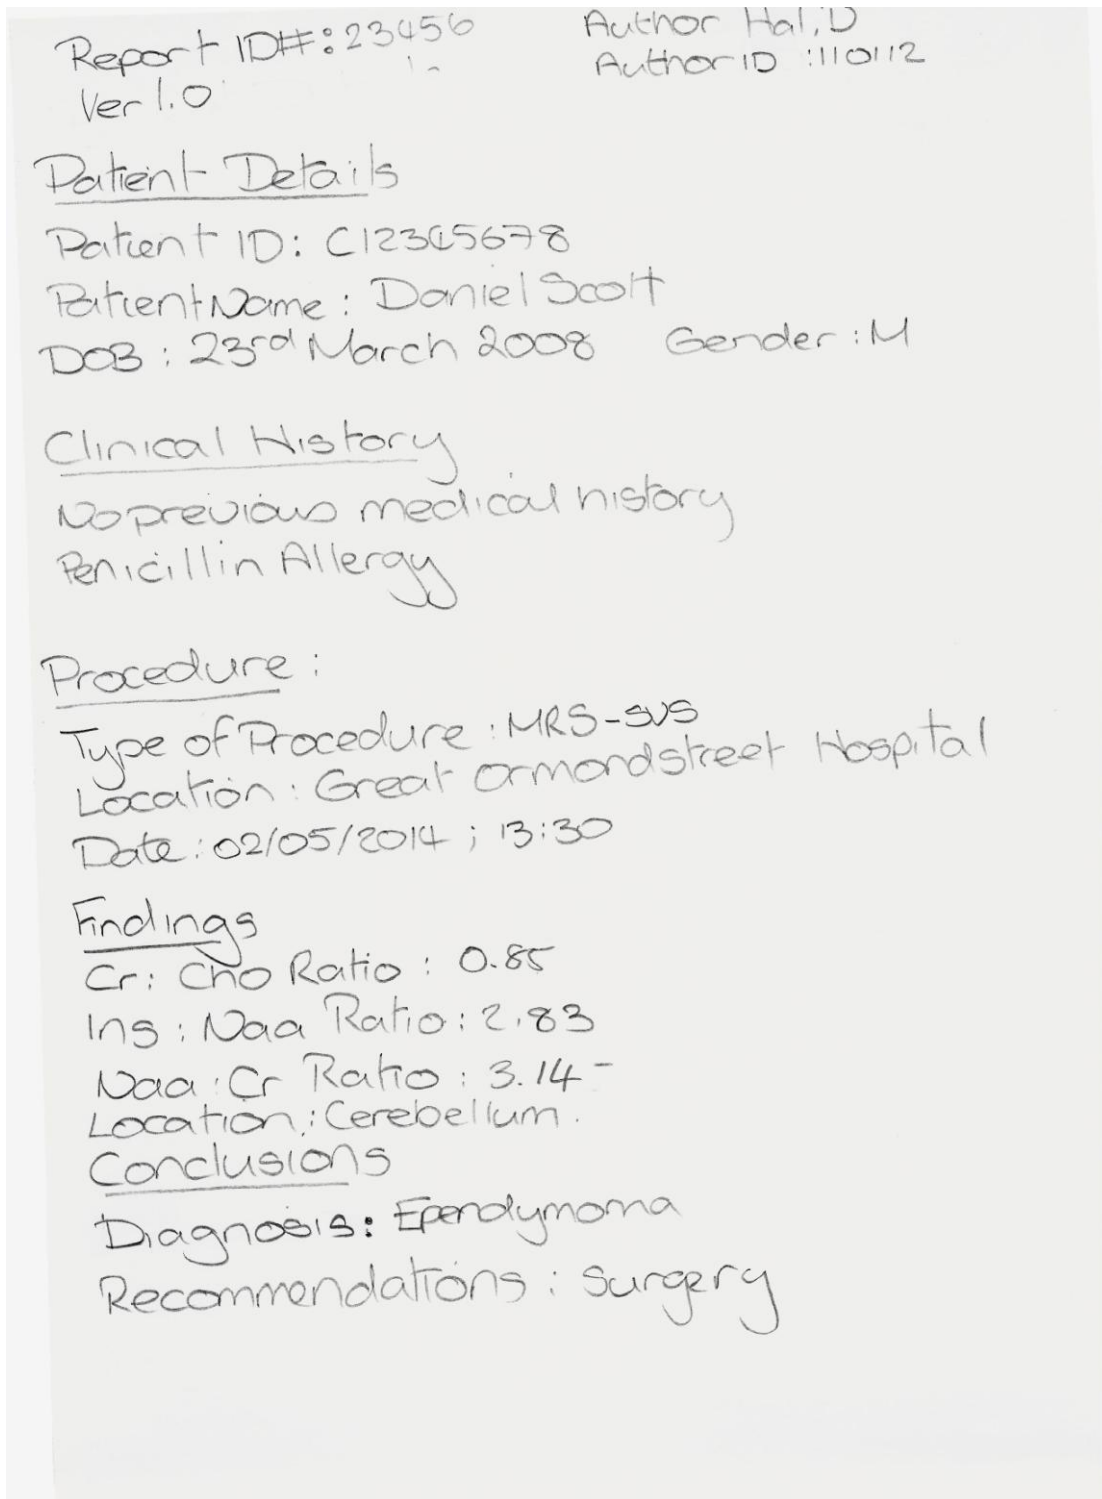 Report ID#: 23456
Author Hal, D
Ver 1.0
Author ID : 110112
Patient Details
Patient ID: C12345678
Patient Name : Daniel Scott
DOB : 23rd March 2008 Gender : M
Clinical History
No previous medical history
Penicillin Allergy
Procedure :
Type of Procedure : MRS-SVS
Location : Great Ormondstreet Hospital
Date : 02/05/2014 ; 13:30
Findings
Cr : Cho Ratio : 0.85
Ins : Naa Ratio : 2.83
Naa : Cr Ratio : 3.14 -
Location : Cerebellum.
Conclusions
Diagnosis : Ependymoma
Recommendations : Surgery